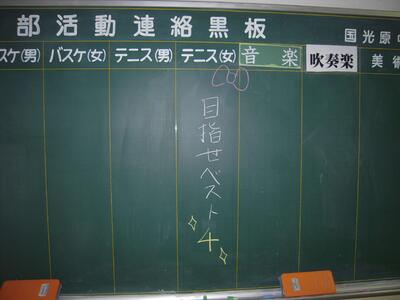 部活動連絡黒板
国光原中
スケ(男) バスケ(女) テニス(男) テニス(女) 音楽 吹奏楽 美術
目指せベスト4